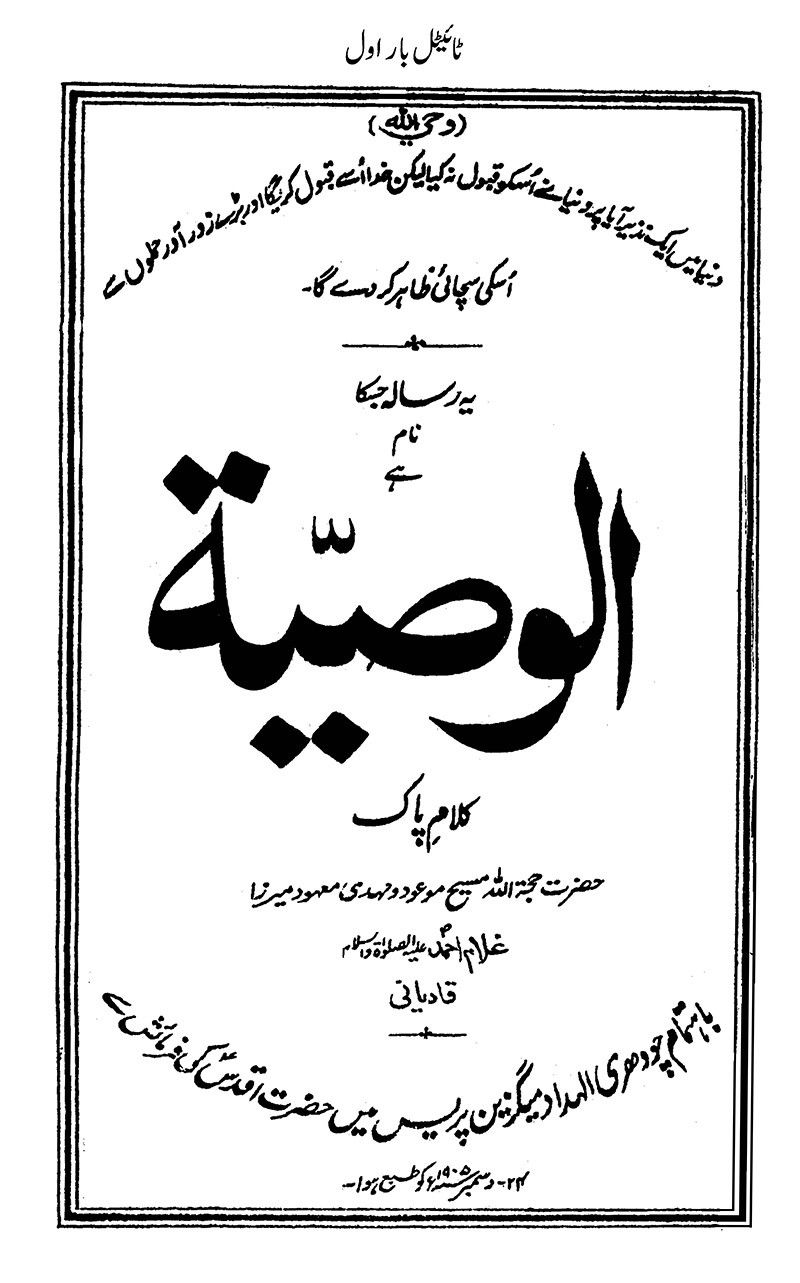 ٹائیٹل بار اول
(وحی اللہ)
دنیا میں ایک نذیر آیا پر دنیا نے اُسکو قبول نہ کیا لیکن خدا اُسے قبول کریگا اور بڑے زور آور حملوں سے
اُسکی سچائی ظاہر کر دے گا۔
یہ رسالہ جسکا
نام
ہے
الوصیّة
کلامِ پاک
حضرت حجۃ اللہ مسیح موعود و مہدی معہود میرزا
غلام احمدؐ علیہ الصلوٰۃ والسلام
قادیانی
باہتمام چودھری الہداد میگزین پریس میں حضرت اقدسؑ کی فرمائش سے
۲۴۔ دسمبر سنہ ۱۹۰۵ء کو طبع ہوا۔